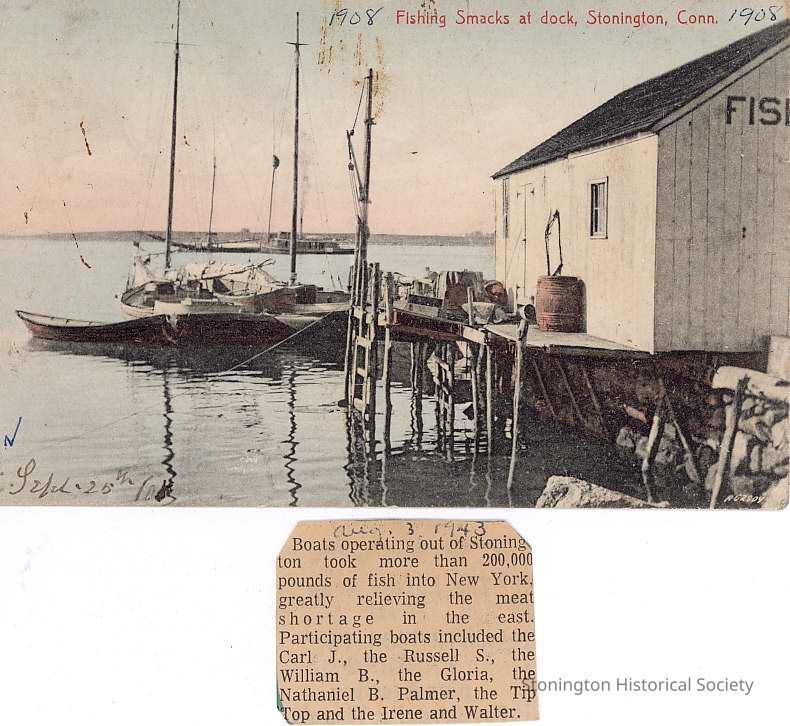 1908 Fishing Smacks at dock, Stonington, Conn. 1908
FISH
N
Sept-25th/08
Aug. 3. 1943
Boats operating out of Stoning-
ton took more than 200,000
pounds of fish into New York,
greatly relieving the meat
shortage in the east.
Participating boats included the
Carl J., the Russell S., the
William B., the Gloria, the
Nathaniel B. Palmer, the Tip
Top and the Irene and Walter.
Stonington Historical Society